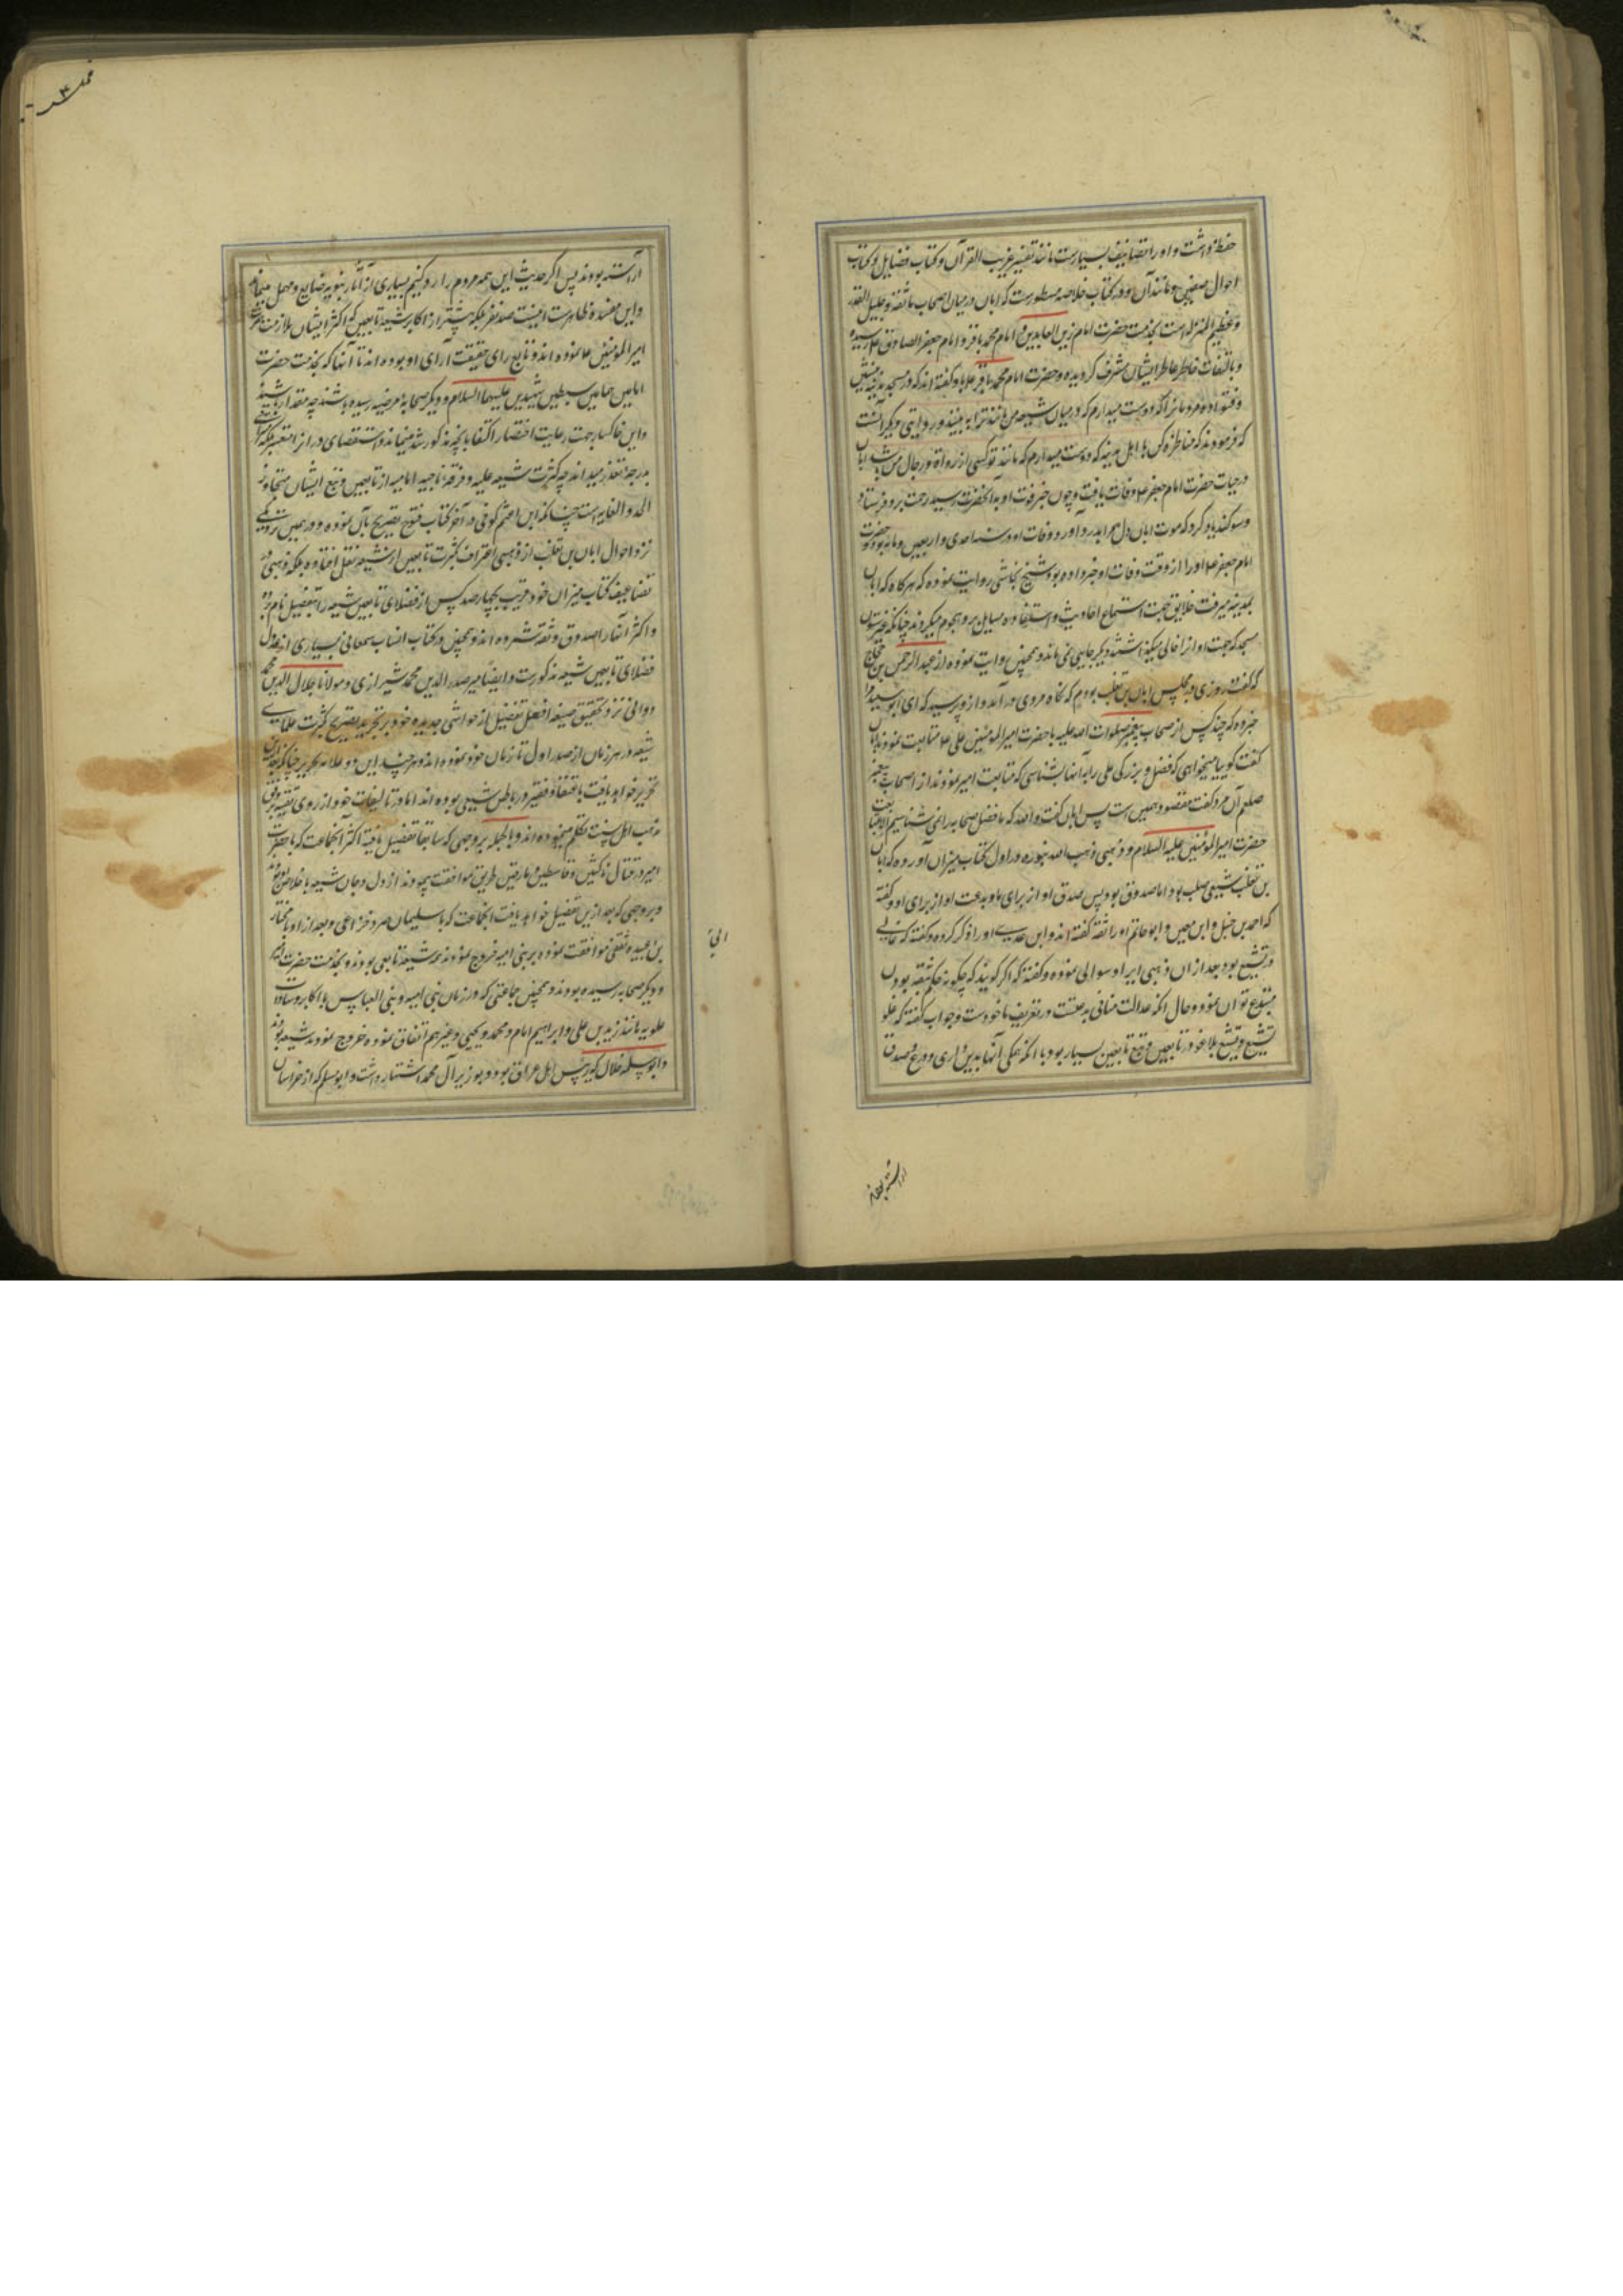 حفظ داشت و او را تصانیف بسیارست مانند تفسیر غریب القرآن و کتاب فضایل و کتاب
احوال صفین و مانند آن و در کتاب خلاصه مسطورست که ابان در میان اصحاب ما ثقه و جلیل القدر
و عظیم المنزله است بخدمت حضرت امام زین العابدین و امام محمد باقر و امام جعفر الصادق ع رسیده
و بالتفات خاطر عاطر ایشان مشرف گردیده و حضرت امام محمد باقر ع با او گفته اند که در مسجد مدینه بنشین
و فتوا ده مردمانرا که دوست میدارم که در میان شیعه من مانند ترا به بینند و روایتی دیگر آنست
که فرمودند که مناظره کن با اهل مدینه که دوست میدارم که مانند تو کسی از رواة و رجال من باشد ابان
در حیات حضرت امام جعفر ع وفات یافت و چون خبر فوت او بآنحضرت رسید رحمت برو فرستاد
و سوگند یاد کرد که موت ابان دل مرا بدرد آورد و وفات او در سنه احدی و اربعین و مایه بود و حضرت
امام جعفر ع او را از وقت وفات او خبر داده بود و شیخ نجاشی روایت نموده که هرگاه که ابان
بمدینه میرفت خلایق جهت استماع احادیث و استفاده مسایل برو هجوم میکردند چنانکه غیر ستون
مسجد که جهت او از آن خالی میکذاشتند دیگر جایی نمی ماند و همچنین روایت نموده از عبد الرحمن بن حجاج
که گفت روزی در مجلس ابان بن تغلب بودم که ناگاه مردی در آمد و از و پرسید که ای ابو سعید مرا
خبر ده که چند کس از صحاب پیغمبر صلوات الله علیه با حضرت امیر المومنین علی ع متابعت نمودند ابان
گفت گوییا میخواهی که فضل و بزرگی علی را به آنها بشناسی که متابعت امیر نمودند از اصحاب پیغمبر
صلعم آن مرد گفت مقصود همین است پس ابان گفت والله که ما فضل صحابه را نمی شناسیم الا بمتابعت
حضرت امیر المومنین علیه السلام و ذهبی ذهب الله بنوره در اول کتاب میزان آورده که ابان
بن تغلب شیعی صلب بود اما صدوق بود پس صدق او از برای ما و بدعت او از برای او و گفته
که احمد بن حنبل و ابن معین و ابو حاتم او را ثقه گفته اند و ابن عدی او را ذکر کرده و گفته که غالی
در تشیع بود بعد از آن ذهبی ایراد سوالی نموده و گفته که اگر گویند که چگونه حکم بثقه بودن
مبتدع توان نمود و حال آنکه عدالت منافی بدعتست در تعریف ماخودست و جواب گفته که غلو
تشیع و تشیع بلا غلو در تابعین و تبع تابعین بسیار بود با آنکه همگی آنها بدین داری و ورع و صدق
آراسته بودند
آراسته بودند پس اگر حدیث این همه مردم را رد کنیم بسیاری از آثار نبویه ضایع و مهمل میماند
و این مفسده ظاهرست انیست صد نفر بلکه بیشتر از اکابر شیعه تابعین که اکثر ایشان ملازمت حضرت
امیر المومنین ع نموده اند و تابع رای حقیقت آرای او بوده اند تا آنها که بخدمت حضرت
امامین همامین سبطین شهیدین علیهما السلام و دیگر صحابه مرضیه رسیده باشند چه مقدار باشند
و این خاکسار جهت رعایت اختصار اکتفا بآنچه مذکور شد مینماید و استقصای در از متعسر بلکه
بدرجه تعذر میداند چه کثرت شیعه علیه و فرقه ناجیه امامیه از تابعین و تبع ایشان متجاوز
الحد و الغایه است چنانکه ابن اعثم کوفی در آخر کتاب فتوح تصریح بآن نموده و در همین نزدیکی
نزد احوال ابان بن تغلب از ذهبی اعتراف بکثرت تابعین از شیعه نقل افتاده بلکه ذهبی در
تضاعیف کتاب میزان خود قریب بچهار صد کس از فضلای تابعین شیعه را بتفصیل نام برده
و اکثر آنها را صدوق و ثقه شمرده اند و همچنین در کتاب انساب سمعانی بسیاری از عدول
فضلای تابعین شیعه مذکورست و ایضا میر صدر الدین محمد شیرازی و مولانا جلال الدین محمد
دوانی نزد تحقیق صیغه افعل تفضیل از حواشی جدیده خود بر تجرید تصریح بکثرت علمای
شیعه در هر زمان از صدر اول تا زمان خود نموده اند و هر چند این دو علامه نحریر چنانکه بعد ازین
تحریر خواهد یافت باتفاق فقیر در باطن شیعی بوده اند اما در تالیفات خود از روی تقیه بر وفق
مذهب اهل سنت تکلم مینموده اند و بالجمله بر وجهی که سابقا تفصیل یافته اکثر آنجماعت که با حضرت
امیر در قتال ناکثین و قاسطین و مارقین طریق موافقت پیمودند از دل و جان شیعه با اخلاص بودند
و بر وجهی که بعد ازین تفصیل خواهد یافت آنجماعت که با سلیمان صرد خزاعی و بعد از او با مختار
بن عبیده ثقفی موافقت نموده بر بنی امیه خروج نمودند همه شیعه تابعی بودند و بخدمت حضرت امیر
و دیگر صحابه رسیده بودند و همچنین جماعتی که در زمان بنی امیه و بنی العباس با اکابر و سادات
علویه مانند زید بن علی و ابراهیم امام و محمد و یحیی و غیرهم اتفاق نموده خروج نمودند شیعه بودند
و ابو سلمه خلال که رئیس اهل عراق بود و بوزیر آل محمد اشتهار داشت و ابو مسلم که از خراسان